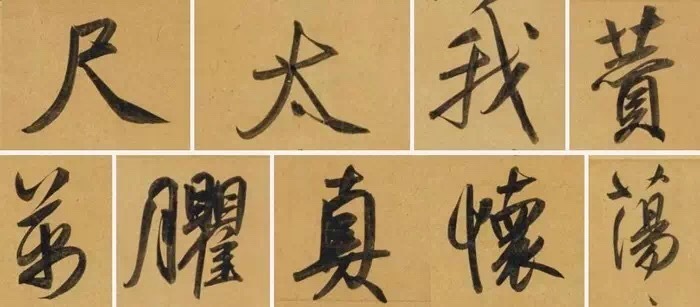 尺太我
萬臞真懷蕩